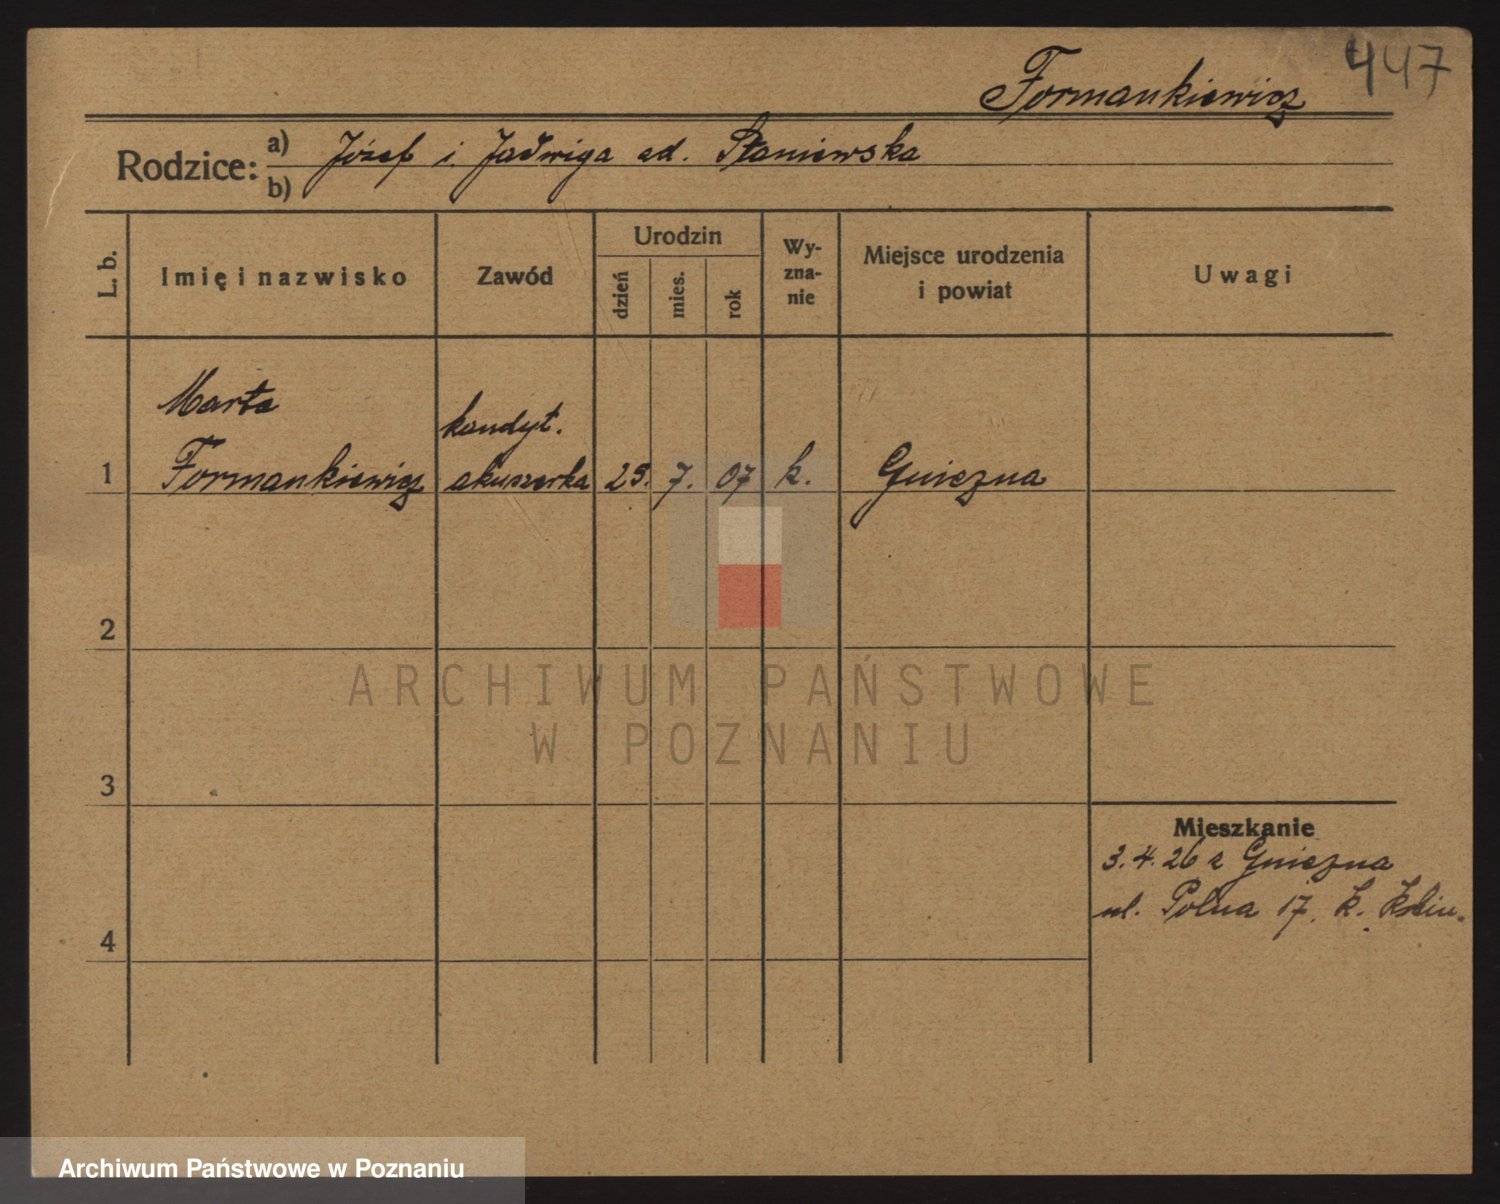 447
Formankiewicz
Rodzice:
a) Józef i Jadwiga
b)
L. b.
Imię i nazwisko
Zawód
Urodzin
dzień
mies.
rok
Wy-
zna-
nie
Miejsce urodzenia
i powiat
Uwagi
Marta
kandyt.
1 Formankiewicz akuszerka 25. 7. 07 k. Gniezna
2
3
4
Mieszkanie
3. 4. 26 z Gniezna
ul. Polna 17. k.
ARCHIWUM PAŃSTWOWE
W POZNANIU
Archiwum Państwowe w Poznaniu